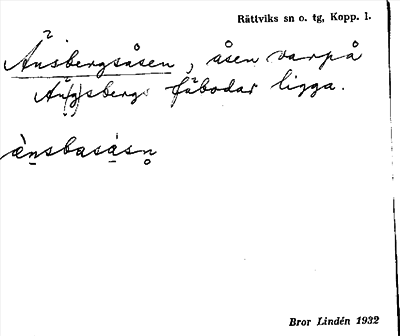 Rättviks sn o. tg, Kopp. l.
Änsbergsåsen, åsen varpå
Än(g)sbergs fäbodar ligga.
ä̀nsbasåsn̥
Bror Lindén 1932